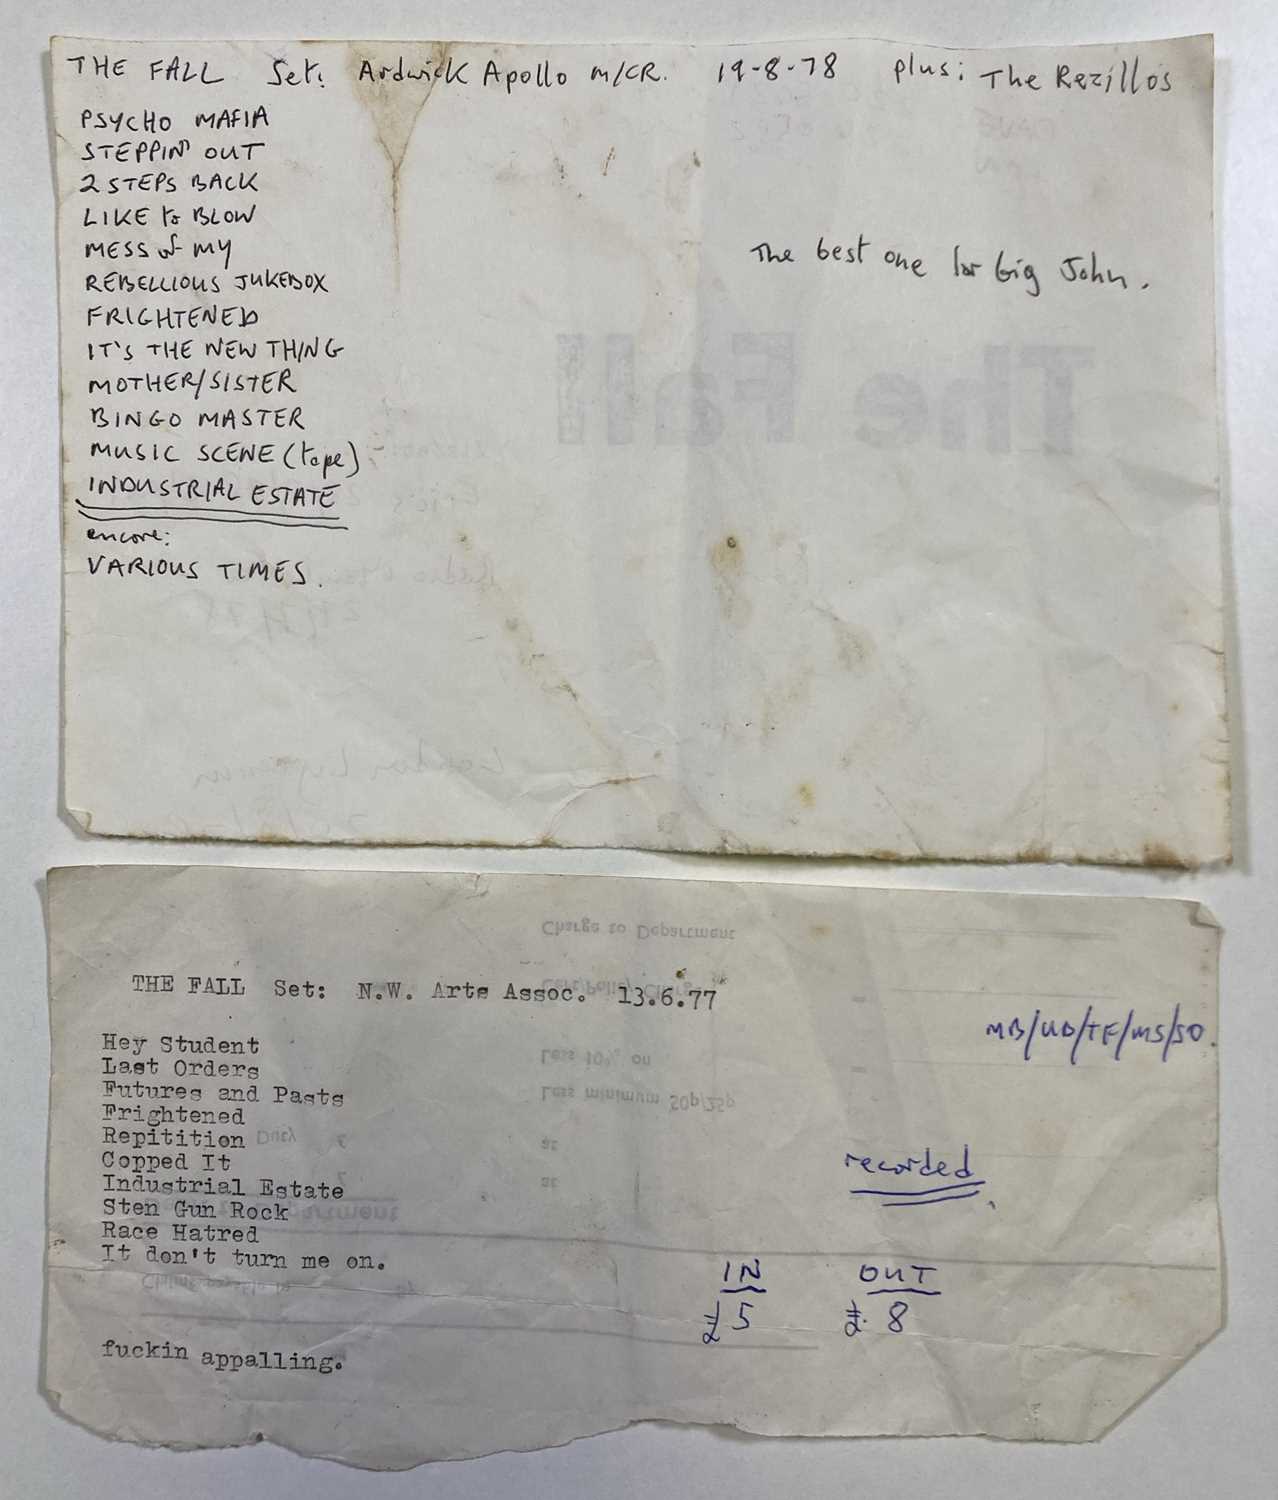 THE FALL Set: Ardwick Apollo M/CR. 19-8-78 plus: The Rezillos
PSYCHO MAFIA
STEPPIN' OUT
2 STEPS BACK
LIKE to BLOW
MESS of MY
REBELLIOUS JUKEBOX
FRIGHTENED
IT'S THE NEW THING
MOTHER/SISTER
BINGO MASTER
MUSIC SCENE (tape)
INDUSTRIAL ESTATE
encore:
VARIOUS TIMES.
The best one for big John.
The Fall
THE FALL Set: N.W. Arts Assoc. 13.6.77
MB/UB/TF/MS/SO.
Hey Student
Last Orders
Futures and Pasts
Frightened
Repitition
Copped It
Industrial Estate
Sten Gun Rock
Race Hatred
It don't turn me on.
recorded.
IN OUT
£5 £.8
fuckin appalling.
Charge to Department
Less 10% on
Less minimum 50p/25p
Duty £ at
at